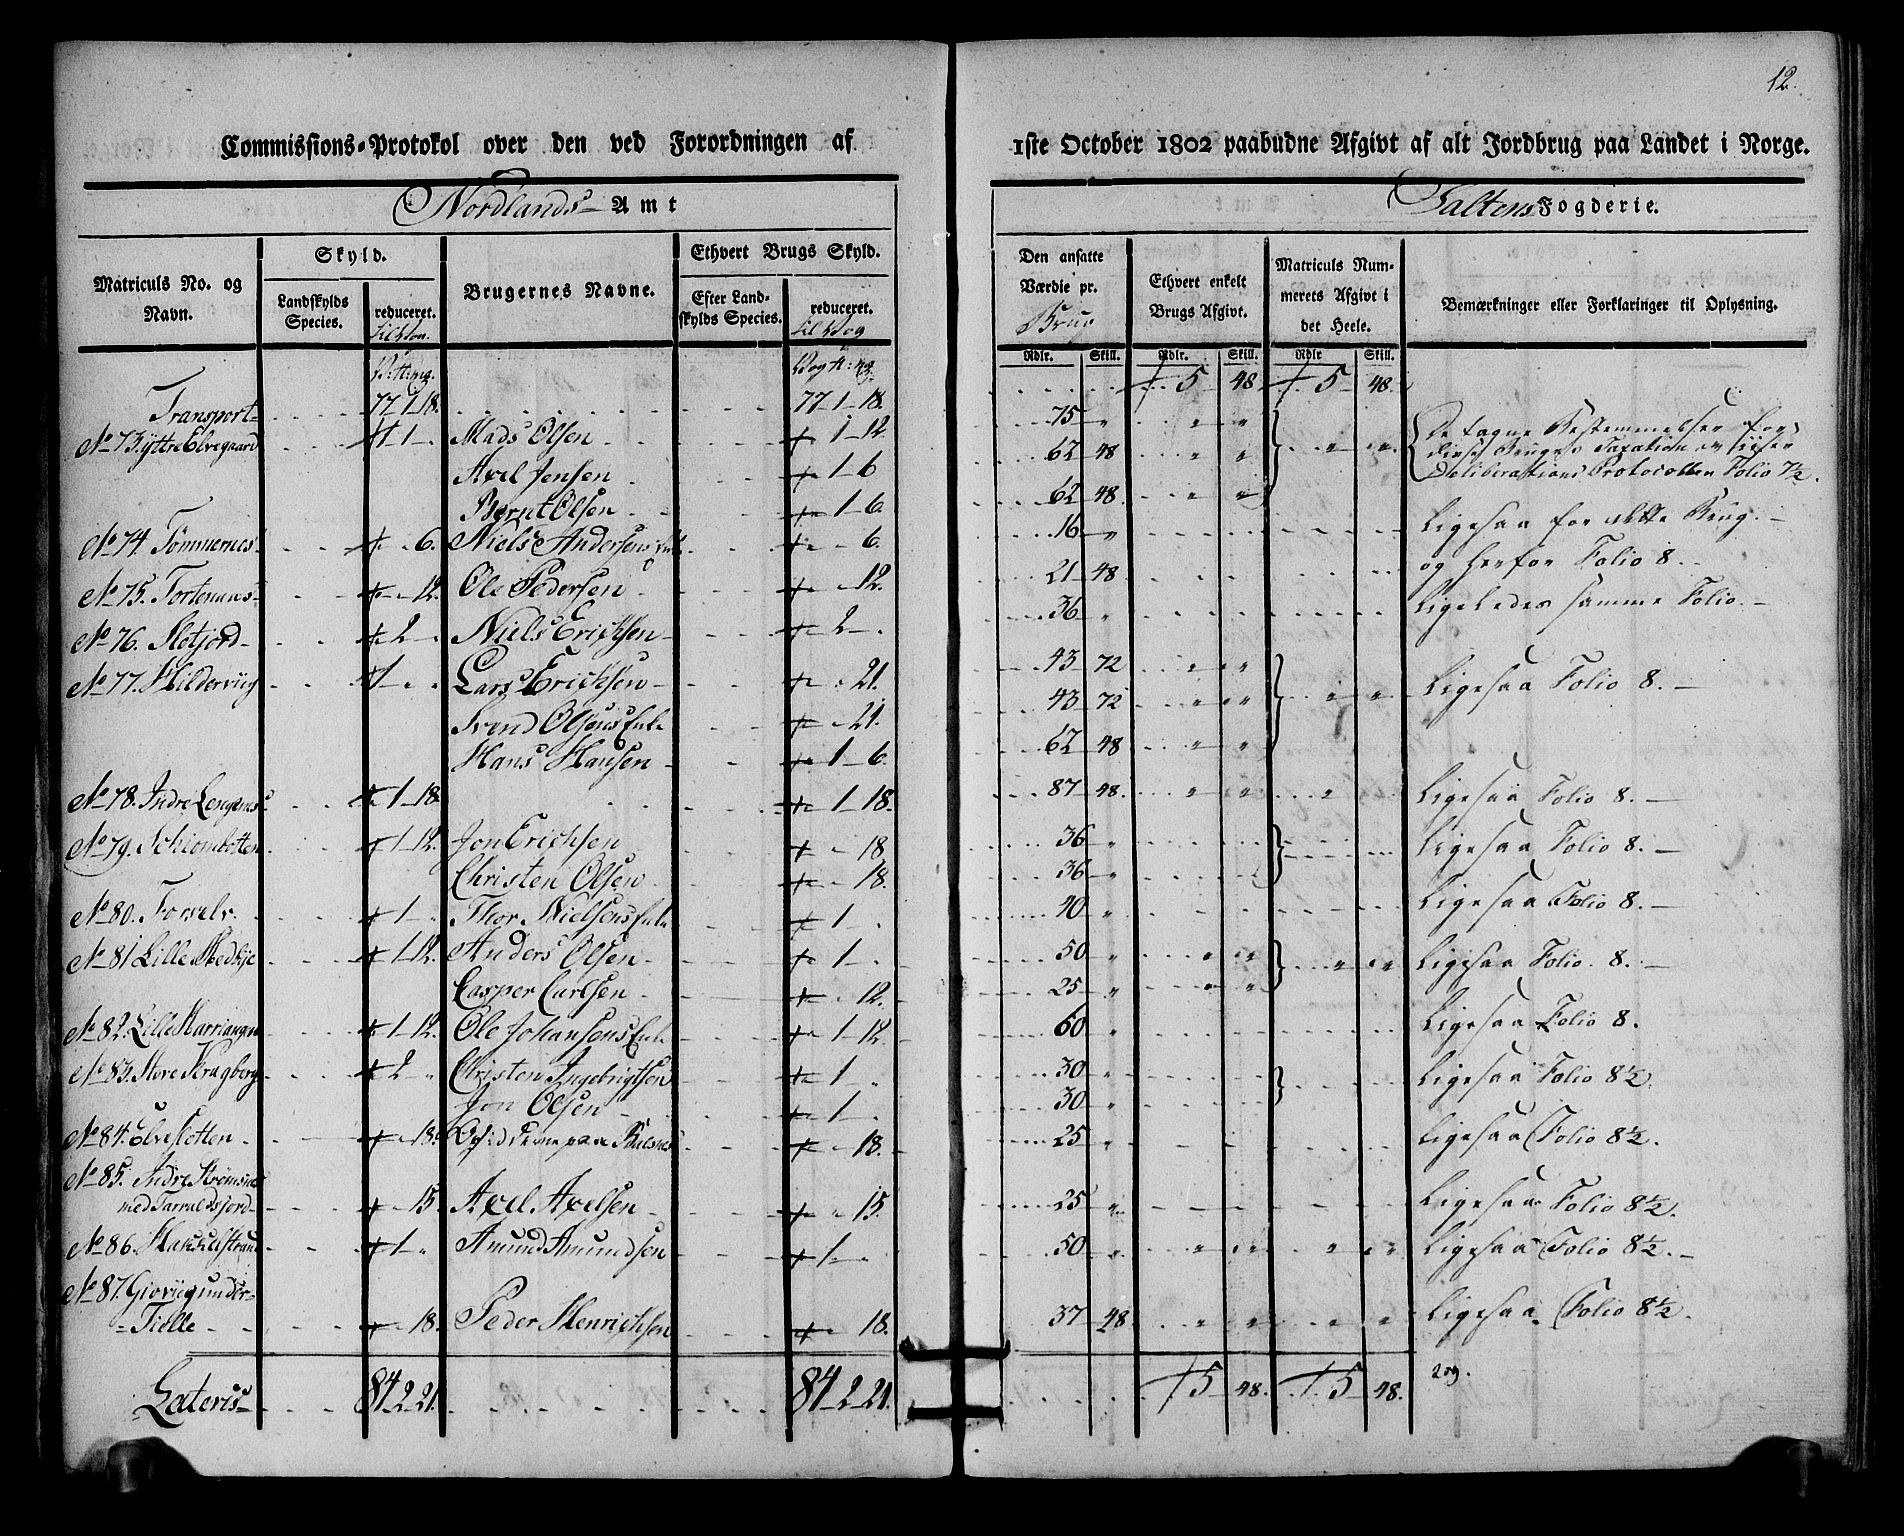 12.
Commissions-Protokol over den ved Forordningen af 1ste October 1802 paabudne Afgivt af alt Jordbrug paa Landet i Norge.
Nordlands Amt
Saltens Fogderie.
Matriculs No. og Navn.
Skyld.
Landskylds Species.
reduceret.
Brugernes Navne.
Ethvert Brugs Skyld.
Efter Landskylds Species.
reduceret.
Den ansatte Værdie pr. Brug
Ethvert enkelt Brugs Afgivt.
Matriculs Nummerets Afgivt i det Heele.
Bemærkninger eller Forklaringer til Oplysning.
Rdlr. Skill. Rdlr. Skill. Rdlr Skill.
Transport 77 1 18. 77 1 18. 5 48 5 48
No 73. Yttre Elvegaard 1 Mads Olsen 1 12. 75 De tagne Bestemmelser for
Axel Jensen 1 6 62 48 disse Bruges Taxation
Bernt Olsen 1 6. 62 48 Deliberations Protocollen Folio 7½.
No 74. Tømmernes 6. Niels Andersens 6. 16 Ligesaa for dette Brug.
No 75. 12. Ole Pedersen 12. 21 48 og herfor Folio 8.
No 76. 2 Niels Erichsen 2 36 Ligeledes samme Folio.
No 77. Hilderviig 1 Lars Erichsen 21. 43 72 Ligesaa Folio 8.
Svend Olsens Enke 21. 43 72
Hans Hansen 1 6 62 48
No 78. Indre Lengenes 1 18. 1 18. 87 48. Ligesaa Folio 8.
No 79. Schiombotten 1 12. Jon Erichsen 18 36 Ligesaa Folio 8.
Christen Olsen 18. 36
No 80. Forselv. 1 Thor Nielsens Enke 1 40 Ligesaa Folio 8.
No 81 Lille 1 12. Anders Olsen 1 50 Ligesaa Folio 8.
Casper Carlsen 12. 25
No 82. Lille 1 12. Ole Johansens Enke 1 12. 60 Ligesaa Folio 8.
No 83. Store Kragberg 2 Christen Ingebrigtsen 1 30 Ligesaa Folio 8½.
Jon Olsen 1 30
No 84. 18. paa 18. 25 Ligesaa Folio 8½.
No 85. Indre Strømsnes
med Tarraldsfjord 15. Axel Axelsen 15. 25 Ligesaa Folio 8½.
No 86. 1 Amund Amundsen 1 50 Ligesaa Folio 8½.
No 87. Giøviig under
Fielle 18. Peder Henrichsen 18. 37 48. Ligesaa Folio 8½.
Lateris 84 2 21. 84 2 21. 5 48. 5 48.